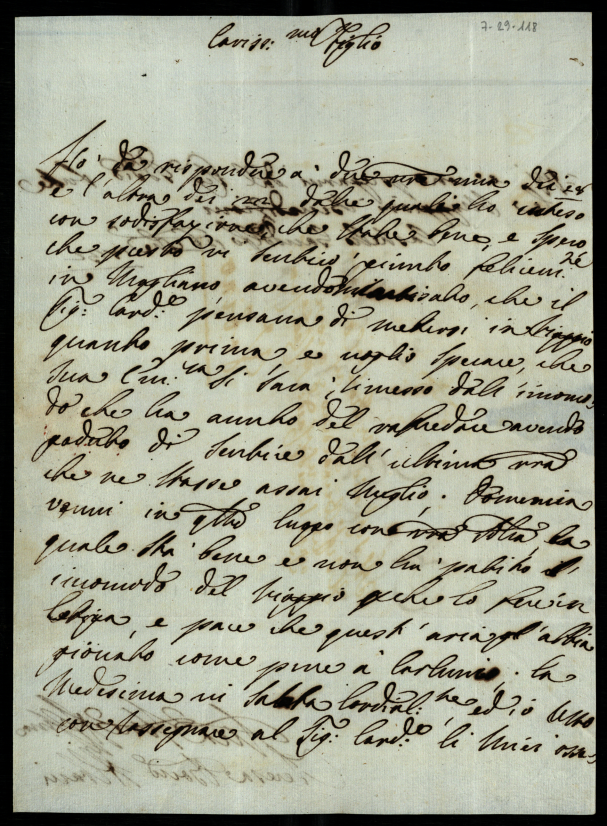 7-29-118
Cariss:mo figlio
Ho da rispondere a due vre una dei
e l'altra dei dalle quali ho inteso
con sodisfazione, che state bene, e spero
che presto vi sentirò giunto felicem:te
in Magliano avendo che il
Sig: Card:e pensava di mettersi in viaggio
quanto prima e voglio sperare, che
Sua Em:za si sarà rimesso dall'incomo-
do che ha avuto del rafredore avendo
goduto di sentire dall'ultima vra
che ne stasse assai meglio. Domenica
venni in qsto luogo con vra la
quale stà bene e non hà patito
incomodo del viaggio perche lo fece in
letiga, e pare che quest'aria gl'abbia
giovato come pure a La
Medesima vi saluta cordial:te ed io resto
con rassegnare al Sig: Card:e li miei osse-